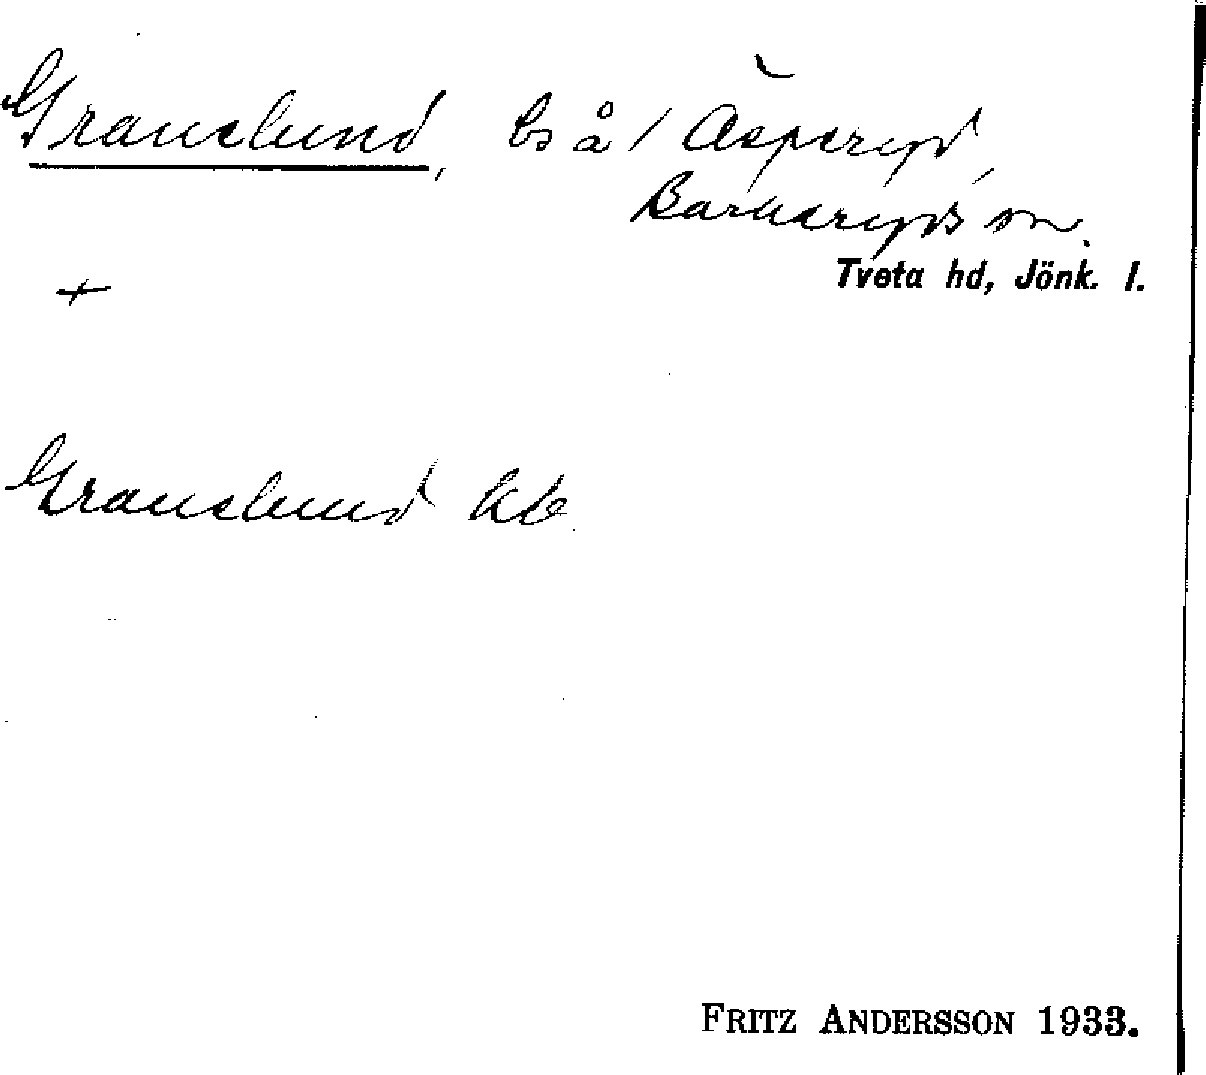 Granelund, bs å / Äsperyd,
Barkeryds sn.
Tveta hd, Jönk. l.
+
Granelund
FRITZ ANDERSSON 1933.